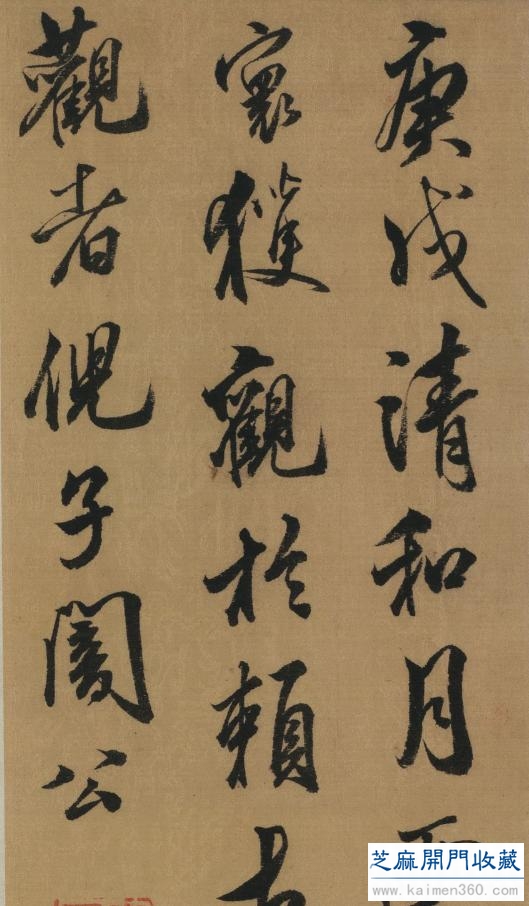 庚戌清和月
寰獲觀於賴古
觀者倪子闇公
芝麻開門收藏
www.kaimen360.com